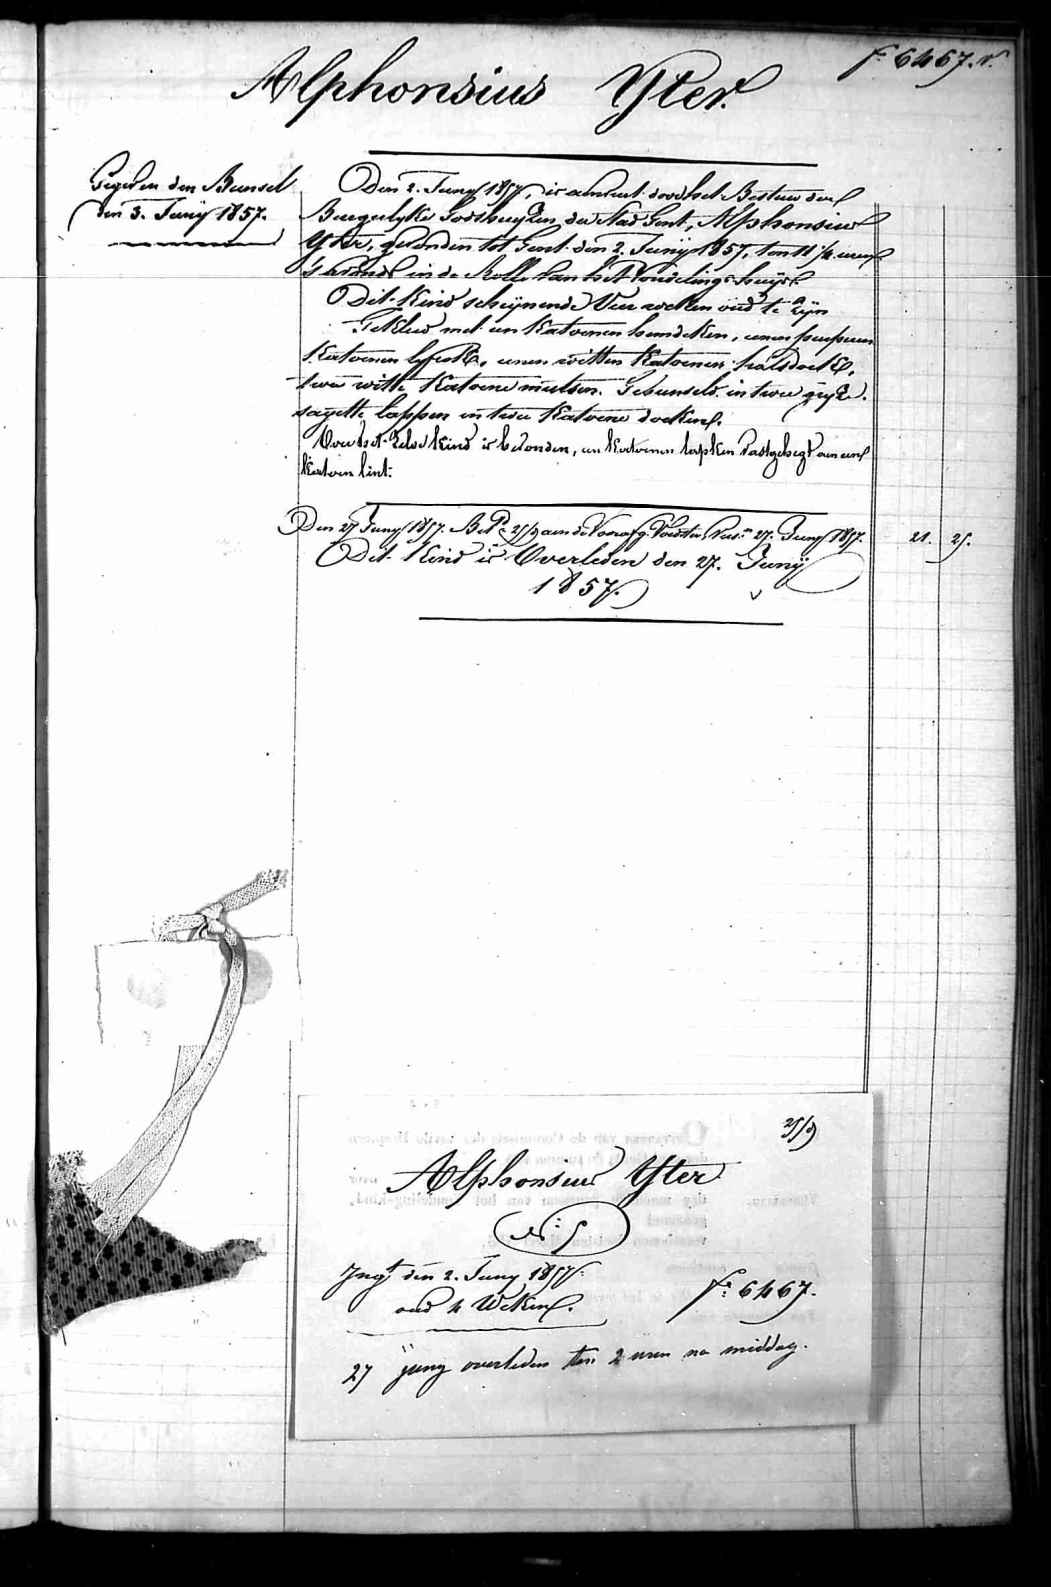 fº 6467. v.
Alphonsius Yter.
Gegeven den Bunsel
den 3. Junij 1857.
Den 2. Juny 1857, is aenveert door het Bestuer der
Burgerlyke Godshuyzen, der Stad Gent, Alphonsius
Yter, gevonden tot Gent den 2. Junij 1857, ten 11 ½ uren
's avonds in de Rolle van het Vondelingshuijs.
Dit Kind scheijnende Vier weken oud te zijn
Gekleed met een Katoenen hemdeken, eenen purperen
Katoenen lyfrok, eenen witten Katoenen halsdoek,
twee witte Katoene mutsen. Gebunseld in twee gryze
sayette lappen en twee Katoene doeken.
Voor het zelve Kind is bevonden, een Katoenen lapken vastgehegt aen een
Katoen lint.
Den 27 Juny 1857. Bet. 25/9 aen de Voorafg. Voedster, Rus.n 27. Juny 1857.
21. 25.
Dit Kind is Overleden den 27. Junij
1857.
25/9
Alphonsius Yter
Nº 5
Ingt. den 2. Juny 1857.
oud 4 Weken.
fº 6467.
27 juny overleden ten 2 uren na middag.